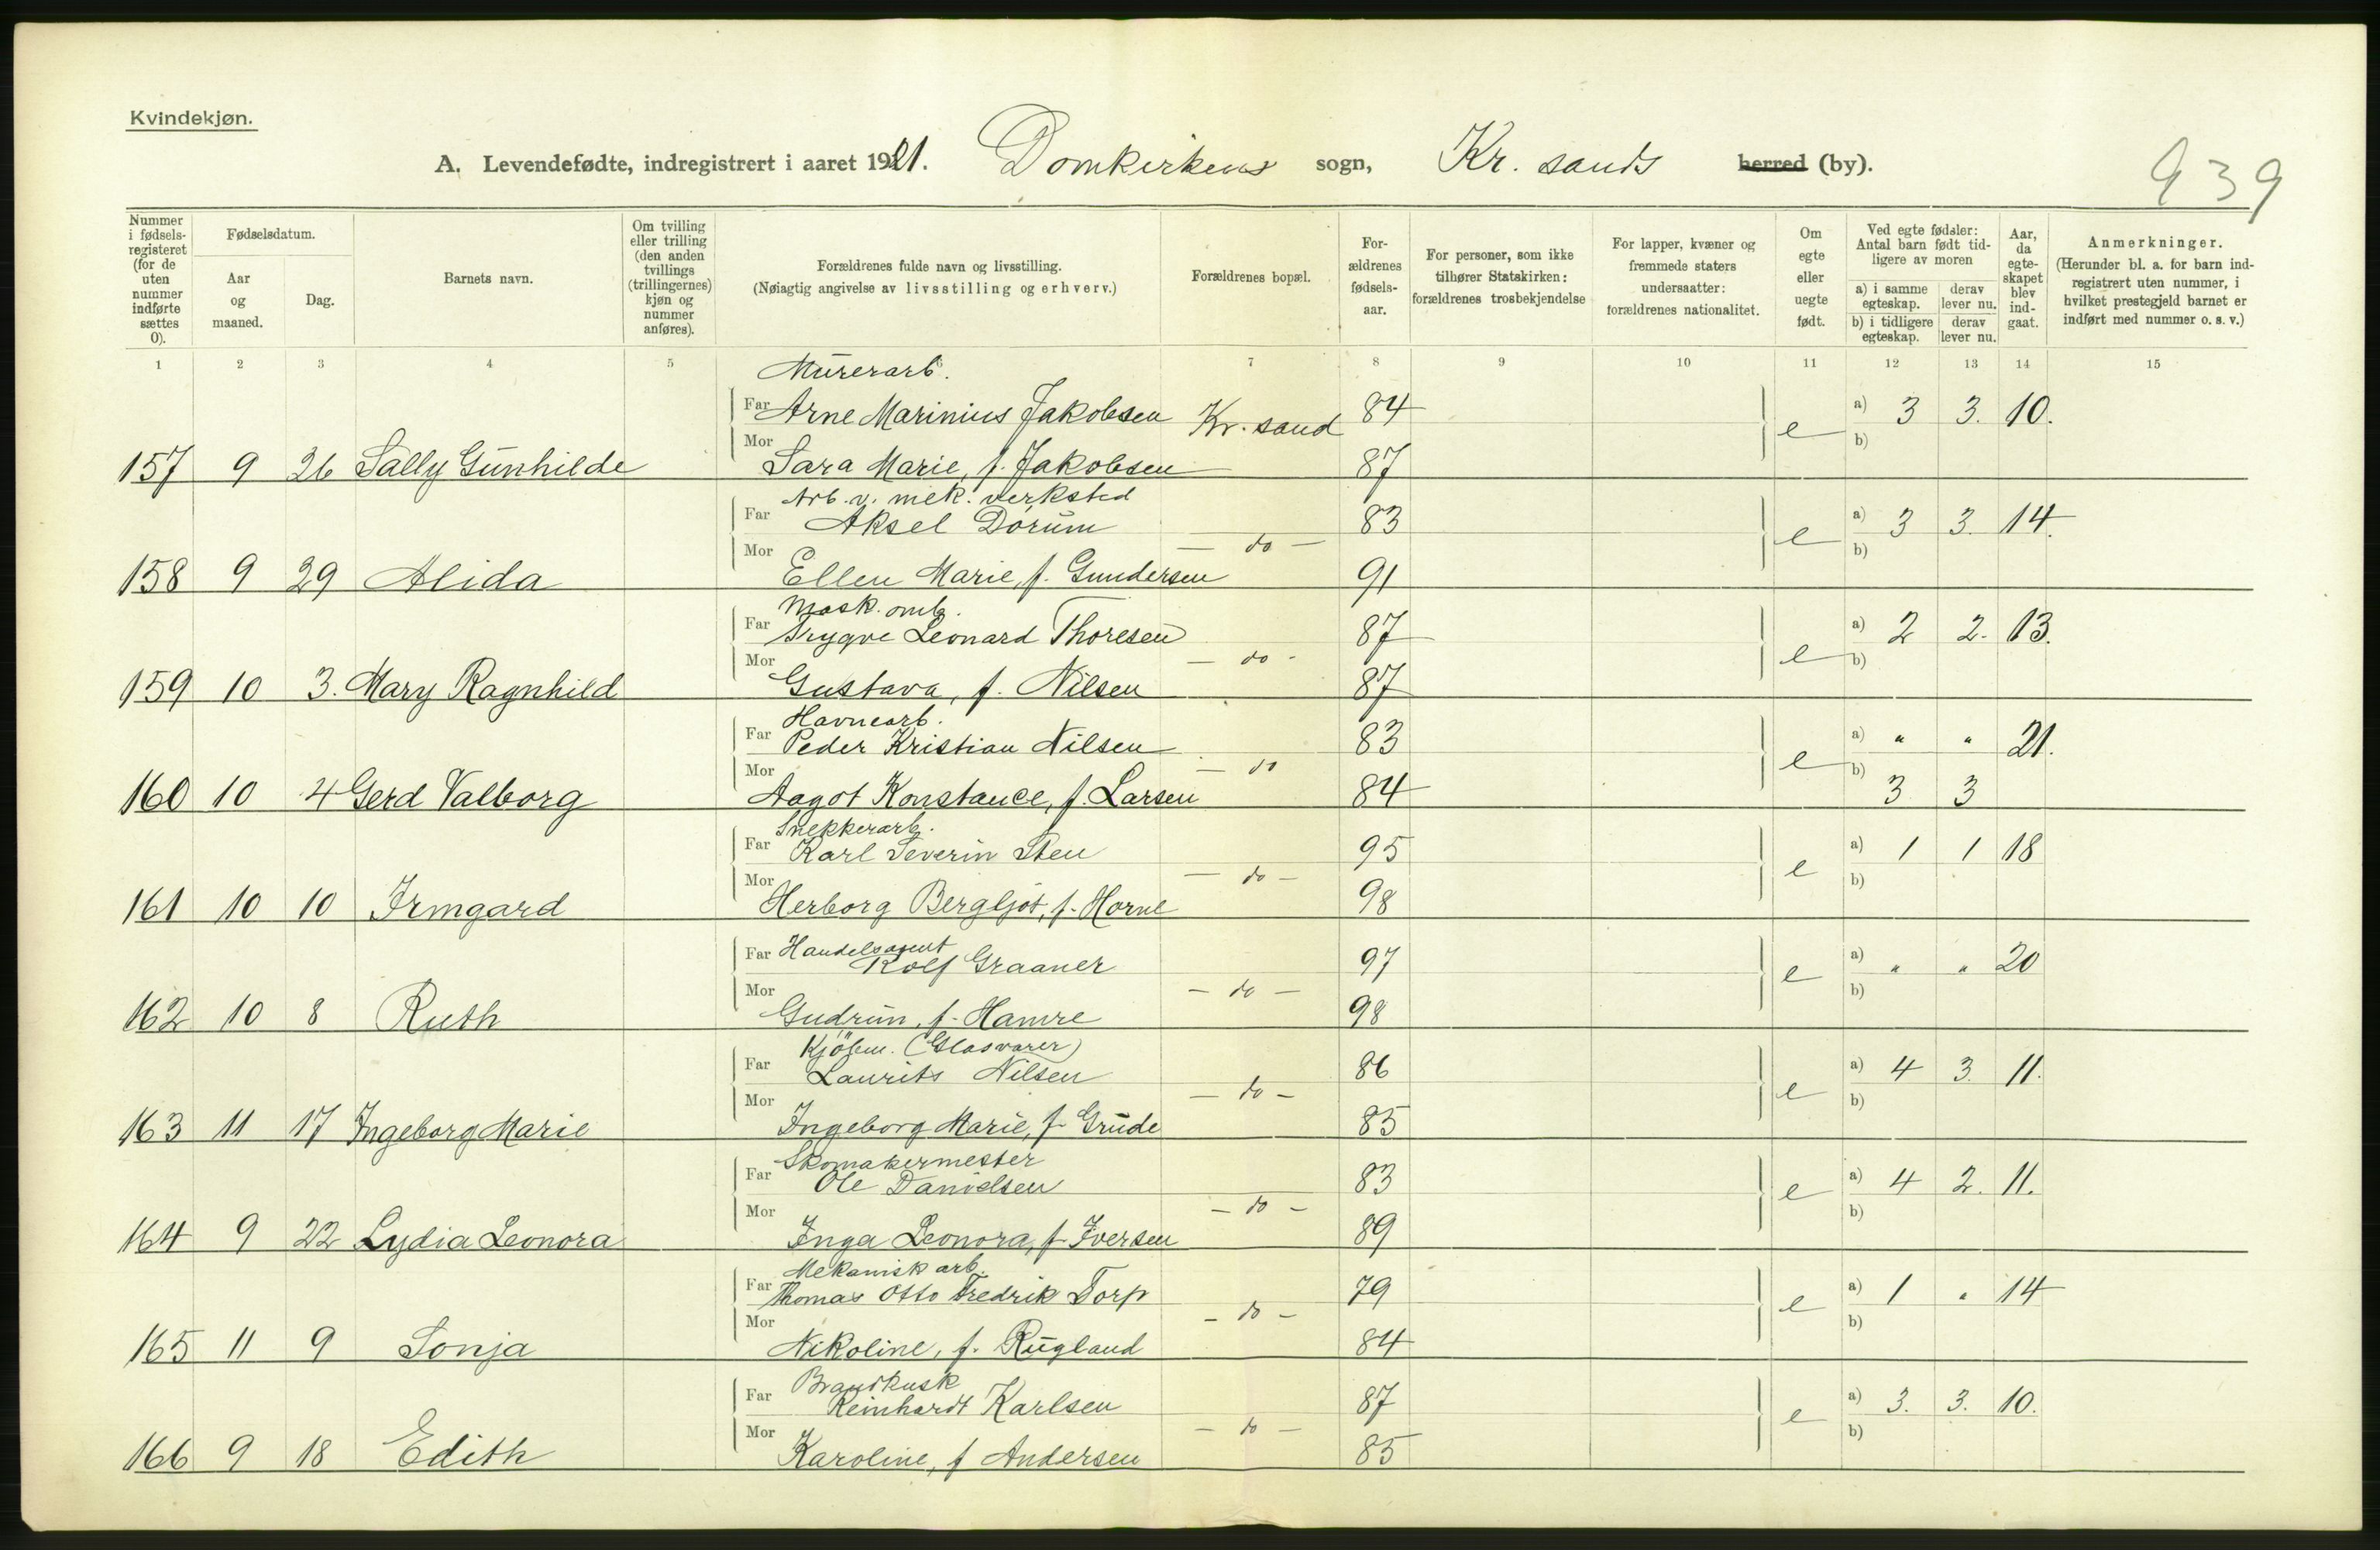 Kvindekjøn.
A. Levendefødte, indregistrert i aaret 1921. Domkirkens sogn, Kr. sands herred (by).
939
Nummer i fødsels-registeret (for de uten nummer indførte sættes 0).
Fødselsdatum.
Aar og maaned.
Dag.
Barnets navn.
Om tvilling eller trilling (den anden tvillings (trillingernes) kjøn og nummer anføres).
Forældrenes fulde navn og livsstilling.
(Nøiagtig angivelse av livsstilling og erhverv.)
Forældrenes bopæl.
For-ældrenes fødsels-aar.
For personer, som ikke tilhører Statskirken: forældrenes trosbekjendelse
For lapper, kvæner og fremmede staters undersaatter: forældrenes nationalitet.
Om egte eller uegte født.
Ved egte fødsler: Antal barn født tid-ligere av moren
a) i samme egteskap.
derav lever nu.
b) i tidligere egteskap.
derav lever nu.
Aar, da egte-skapet blev ind-gaat.
Anmerkninger.
(Herunder bl. a. for barn ind-registrert uten nummer, i hvilket prestegjeld barnet er indført med nummer o. s. v.)
1 2 3 4 5 6 7 8 9 10 11 12 13 14 15
Murerarb.
Far Arne Marinius Jakobsen Kr. sand 84 e a) 3 3. 10.
157 9 26 Sally Gunhilde Mor Sara Marie, f. Jakobsen 87 b)
Arb. v. mek. verksted
Far Aksel Dorum — do — 83 e a) 3 3. 14.
158 9 29 Alida Mor Ellen Marie, f. Gundersen 91 b)
Mask. omb.
Far Trygve Leonard Thoresen — do - 87 e a) 2 2. 13.
159 10 3. Mary Ragnhild Mor Gustava, f. Nilsen 87 b)
Havnearb.
Far Peder Kristian Nilsen — do 83 e a) " " 21.
160 10 4 Gerd Valborg Mor Aagot Konstance, f. Larsen 84 b) 3 3
Snekkerarb.
Far Karl Severin Sten — do — 95 e a) 1 1 18
161 10 10 Irmgard Mor Herborg Bergljot, f. Horne 98 b)
Far Handelsagent
Rolf Graaner — do — 97 e a) " " 20
162 10 8 Ruth Mor Gudrun, f. Hamre 98 b)
Kjøbm. (Glasvarer)
Far Laurits Nilsen — do — 86 e a) 4 3. 11.
163 11 17 Ingeborg Marie Mor Ingeborg Marie, f. Grude 85 b)
Skomakermester
Far Ole Danielsen — do — 83 e a) 4 2. 11.
164 9 22 Lydia Leonora Mor Inga Leonora, f. Iversen 89 b)
Mekanisk arb.
Far Thomas Otto Fredrik Torp — do — 79 e a) 1 " 14
165 11 9 Sonja Mor Nikoline, f. Rugland 84 b)
Brandkusk
Far Reinhardt Karlsen — do — 87 e a) 3. 3. 10.
166 9 18 Edith Mor Karoline, f Andersen 85 b)